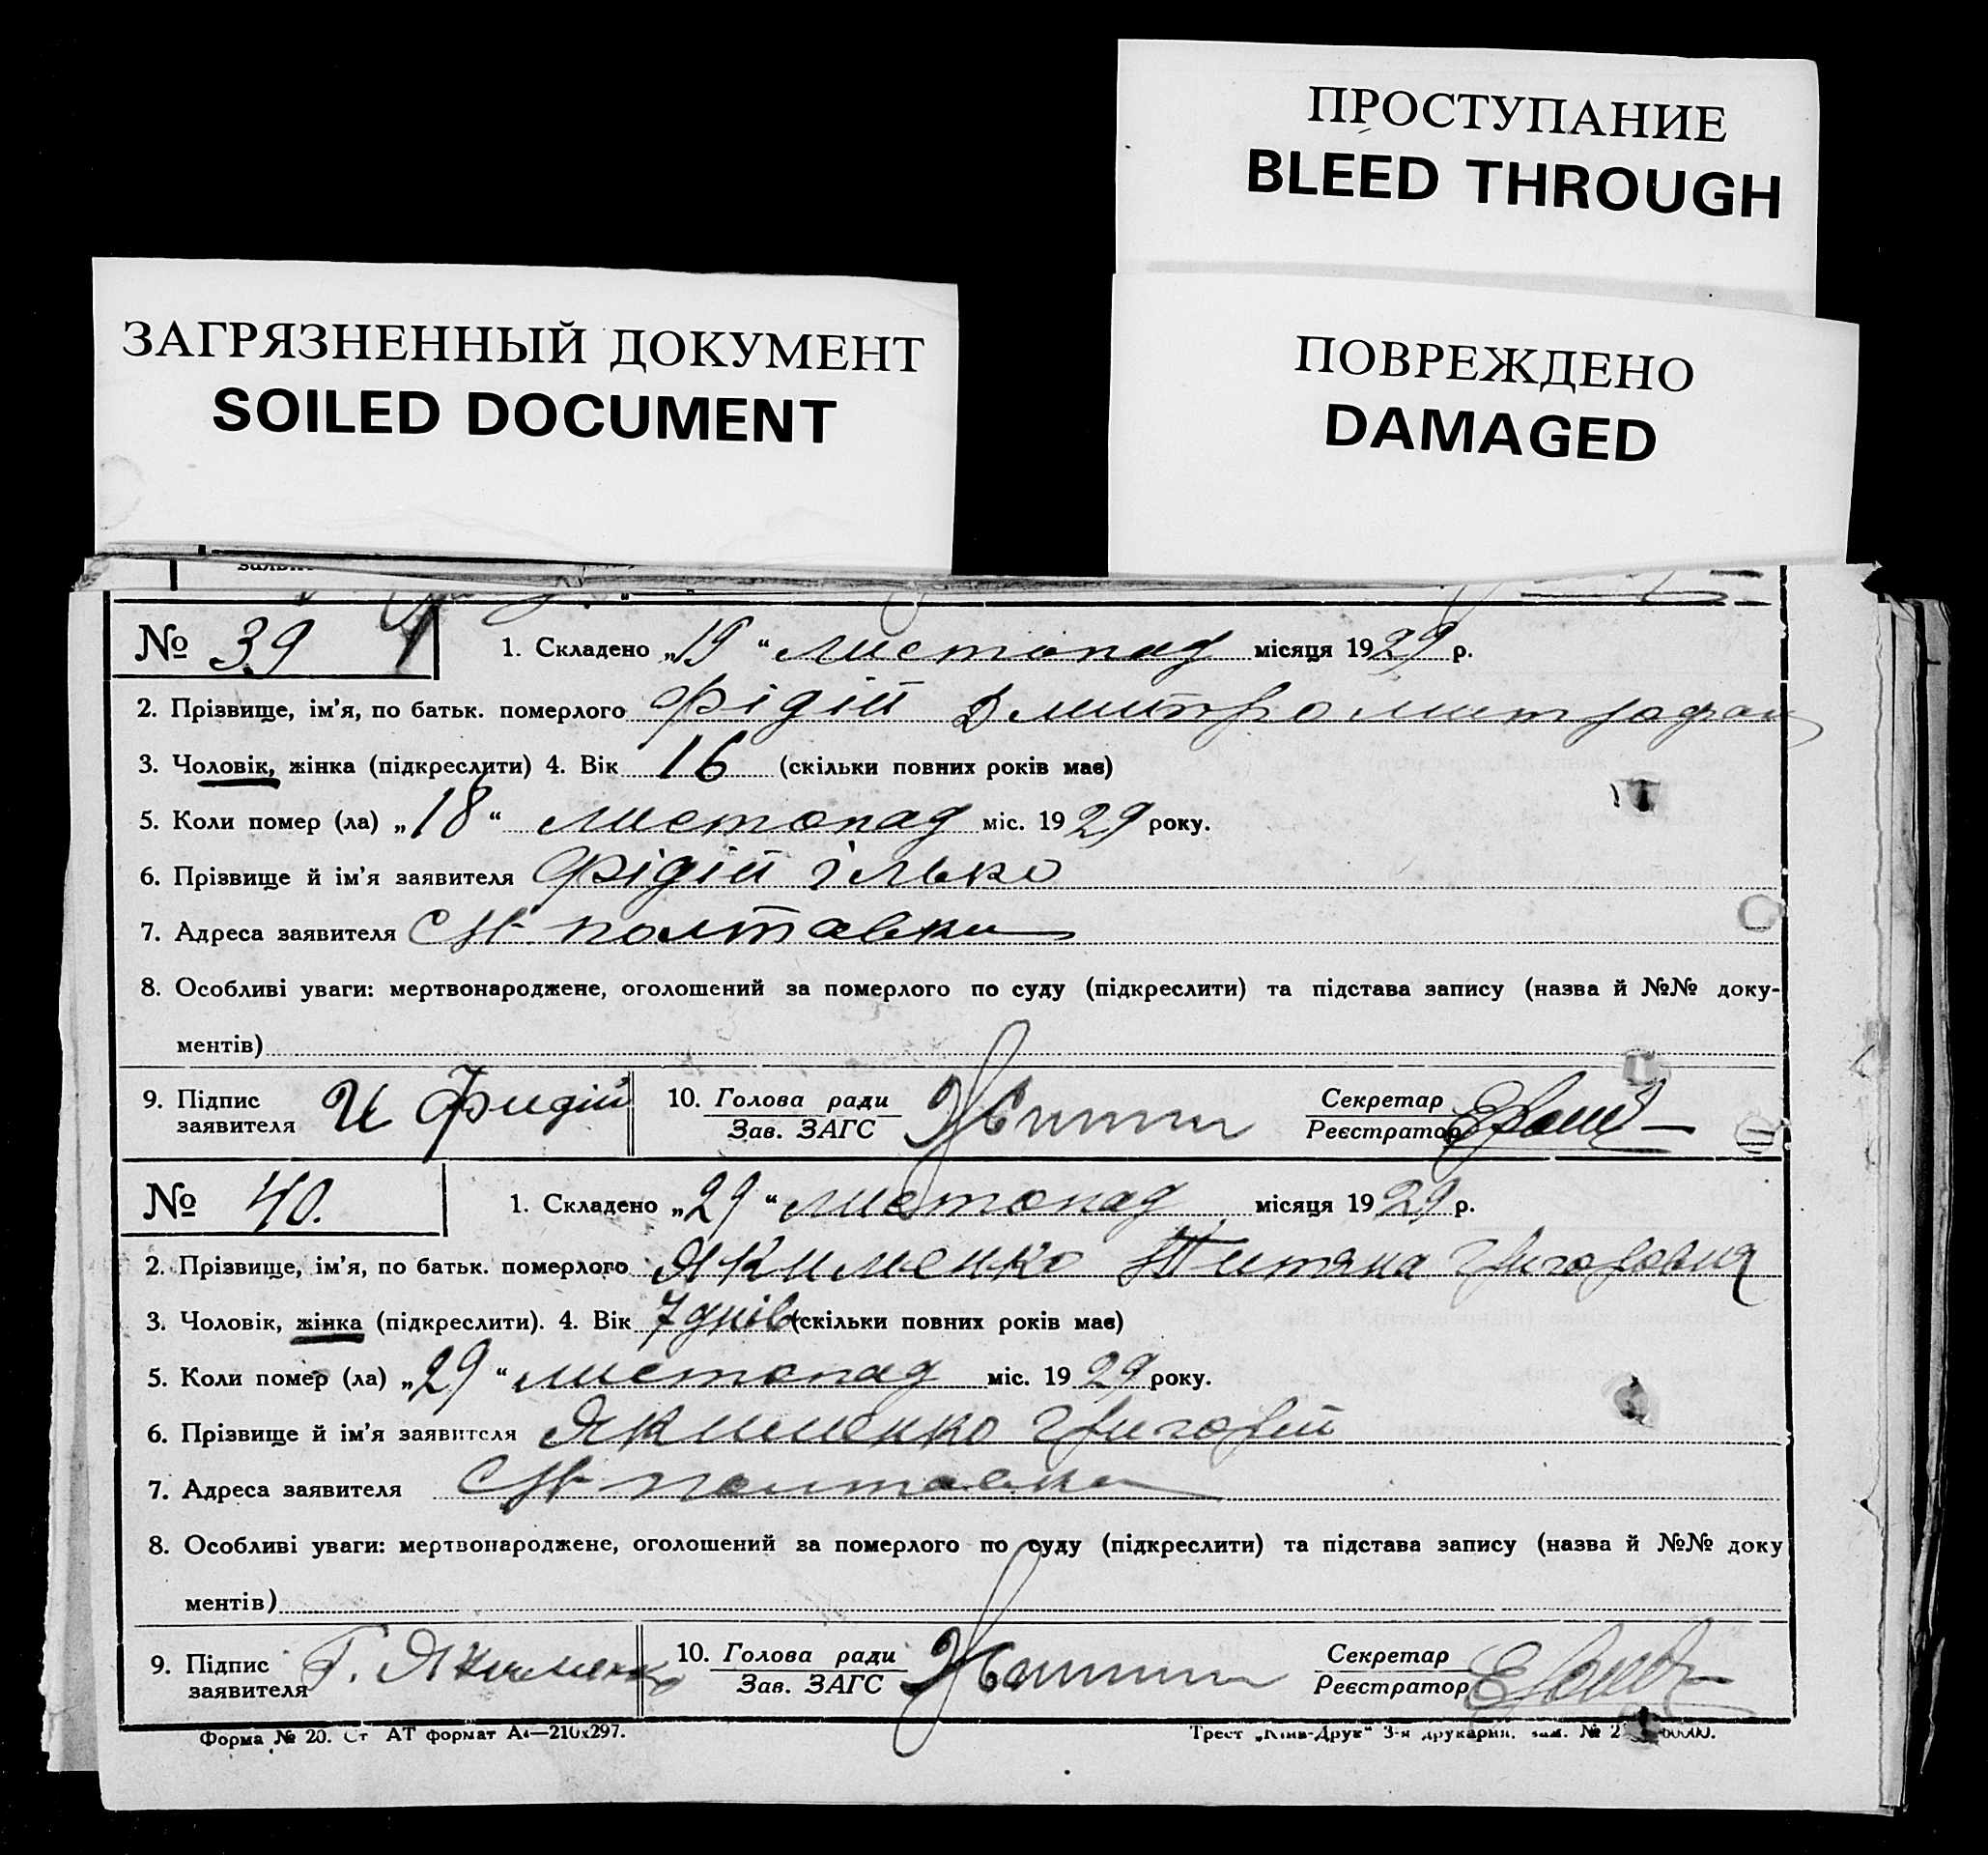 ПРОСТУПАНИЕ
BLEED THROUGH
ЗАГРЯЗНЕННЫЙ ДОКУМЕНТ
SOILED DOCUMENT
ПОВРЕЖДЕНО
DAMAGED
№ 39 1. Складено „19“ листопад місяця 1929 р.
2. Прізвище, ім'я, по батьк. померлого Фідій Дмитро митрофан
3. Чоловік, жінка (підкреслити) 4. Вік 16 (скільки повних років має)
5. Коли помер (ла) „18“ листопад міс. 1929 року.
6. Прізвище й ім'я заявителя Фідій ілько
7. Адреса заявителя полтавка
8. Особливі уваги: мертвонароджене, оголошений за померлого по суду (підкреслити) та підстава запису (назва й №№ доку-
ментів)
9. Підпис заявителя И Фидій 10. Голова ради Зав. ЗАГС Секретар Реєстратор
№ 40. 1. Складено „29“ листопад місяця 1929 р.
2. Прізвище, ім'я, по батьк. померлого Якименко Титяна Григоровня
3. Чоловік, жінка (підкреслити). 4. Вік 7 днів (скільки повних років має)
5. Коли помер (ла) „29“ листопад міс. 1929 року.
6. Прізвище й ім'я заявителя Якименко Григорій
7. Адреса заявителя полтавка
8. Особливі уваги: мертвонароджене, оголошений за померлого по суду (підкреслити) та підстава запису (назва й №№ доку
ментів)
9. Підпис заявителя Г. Якименко 10. Голова ради Зав. ЗАГС Секретар Реєстратор
Форма № 20. Ст АТ формат А4—210х297. Трест „Київ-Друк“ 3-я друкарня. зам. №